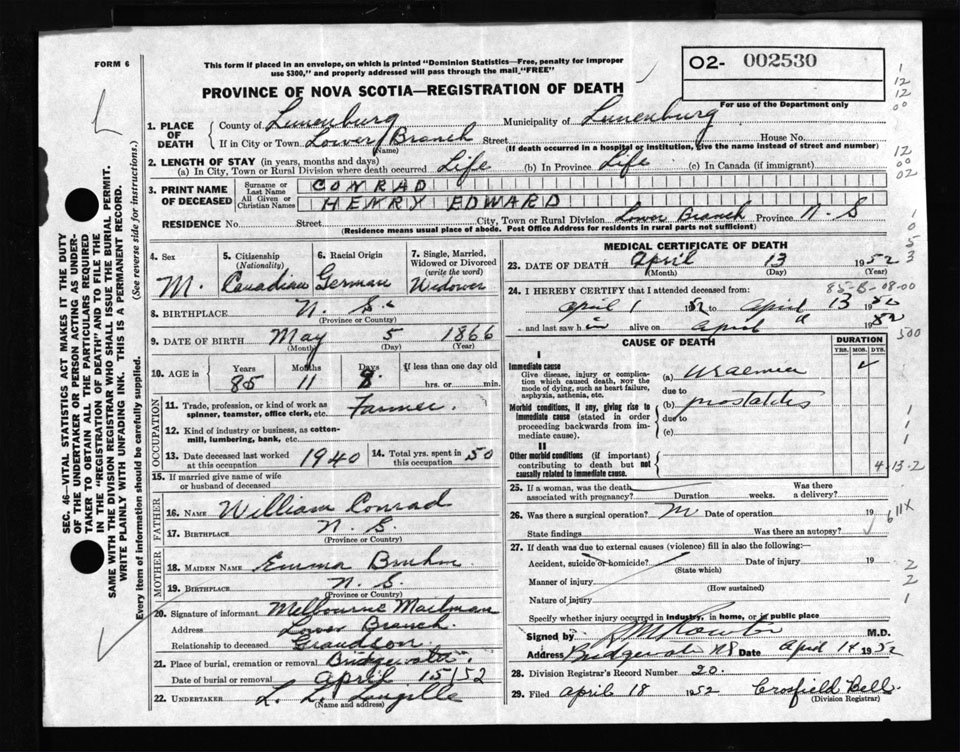 FORM 6
This form if placed in an envelope, on which is printed "Dominion Statistics—Free, penalty for improper
use $300," and properly addressed will pass through the mail "FREE"
O2- 002530
PROVINCE OF NOVA SCOTIA—REGISTRATION OF DEATH
For use of the Department only
1. PLACE OF DEATH County of Lunenburg Municipality of Lunenburg
If in City or Town Lower Branch Street House No.
(Name) (If death occurred in a hospital or institution, give the name instead of street and number)
2. LENGTH OF STAY (in years, months and days)
(a) In City, Town or Rural Division where death occurred Life (b) In Province Life (c) In Canada (if immigrant)
3. PRINT NAME OF DECEASED Surname or Last Name CONRAD
All Given or Christian Names HENRY EDWARD
RESIDENCE No. Street City, Town or Rural Division Lower Branch Province N. S
(Residence means usual place of abode. Post Office Address for residents in rural parts not sufficient)
4. Sex 5. Citizenship (Nationality) 6. Racial Origin 7. Single, Married, Widowed or Divorced (write the word)
M. Canadian German Widower
8. BIRTHPLACE N. S.
(Province or Country)
9. DATE OF BIRTH May 5 1866
(Month) (Day) (Year)
10. AGE in Years Months Days If less than one day old
85 11 8. hrs. or min.
OCCUPATION
11. Trade, profession or kind of work as spinner, teamster, office clerk, etc. Farmer.
12. Kind of industry or business, as cotton-mill, lumbering, bank, etc.
13. Date deceased last worked at this occupation 1940 14. Total yrs. spent in this occupation 50
15. If married give name of wife or husband of deceased
FATHER
16. NAME William Conrad
17. BIRTHPLACE N. S.
(Province or Country)
MOTHER
18. MAIDEN NAME Emma Bruhm
19. BIRTHPLACE N. S.
(Province or Country)
20. Signature of informant Melbourne Mailman
Address Lower Branch.
Relationship to deceased Grandson.
21. Place of burial, cremation or removal Bridgewater.
Date of burial or removal April 15/52
22. UNDERTAKER L. L. Langille
(Name and address)
MEDICAL CERTIFICATE OF DEATH
23. DATE OF DEATH April 13 1952
(Month) (Day) (Year)
85-B-08-00
24. I HEREBY CERTIFY that I attended deceased from:
April 1 1952 to April 13 1952
and last saw him alive on April 1952
CAUSE OF DEATH DURATION
YRS. MOS. DYS.
I
Immediate cause
Give disease, injury or complication which caused death, NOT the mode of dying, such as heart failure, asphyxia, asthenia, etc.
(a) Uraemia
due to
Morbid conditions, if any, giving rise to immediate cause (stated in order proceeding backwards from immediate cause).
(b) prostatitis
due to
(c)
II
Other morbid conditions (if important) contributing to death but not causally related to immediate cause.
4-13-2
25. If a woman, was the death associated with pregnancy? Duration weeks. Was there a delivery?
26. Was there a surgical operation? Date of operation 19
State findings Was there an autopsy?
27. If death was due to external causes (violence) fill in also the following:—
Accident, suicide or homicide? Date of injury 19
(State which)
Manner of injury
(How sustained)
Nature of injury
Specify whether injury occurred in industry, in home, or in public place
Signed by M.D.
Address Bridgewater NS Date April 14 1952
28. Division Registrar's Record Number 20.
29. Filed April 18 1952 Crofield Bell.
(Division Registrar)
SEC. 46—VITAL STATISTICS ACT MAKES IT THE DUTY
OF THE UNDERTAKER OR PERSON ACTING AS UNDER-
TAKER TO OBTAIN ALL THE PARTICULARS REQUIRED
IN THE "REGISTRATION OF DEATH" AND TO FILE THE
SAME WITH THE DIVISION REGISTRAR WHO SHALL ISSUE THE BURIAL PERMIT.
WRITE PLAINLY WITH UNFADING INK. THIS IS A PERMANENT RECORD.
Every item of information should be carefully supplied. (See reverse side for instructions.)